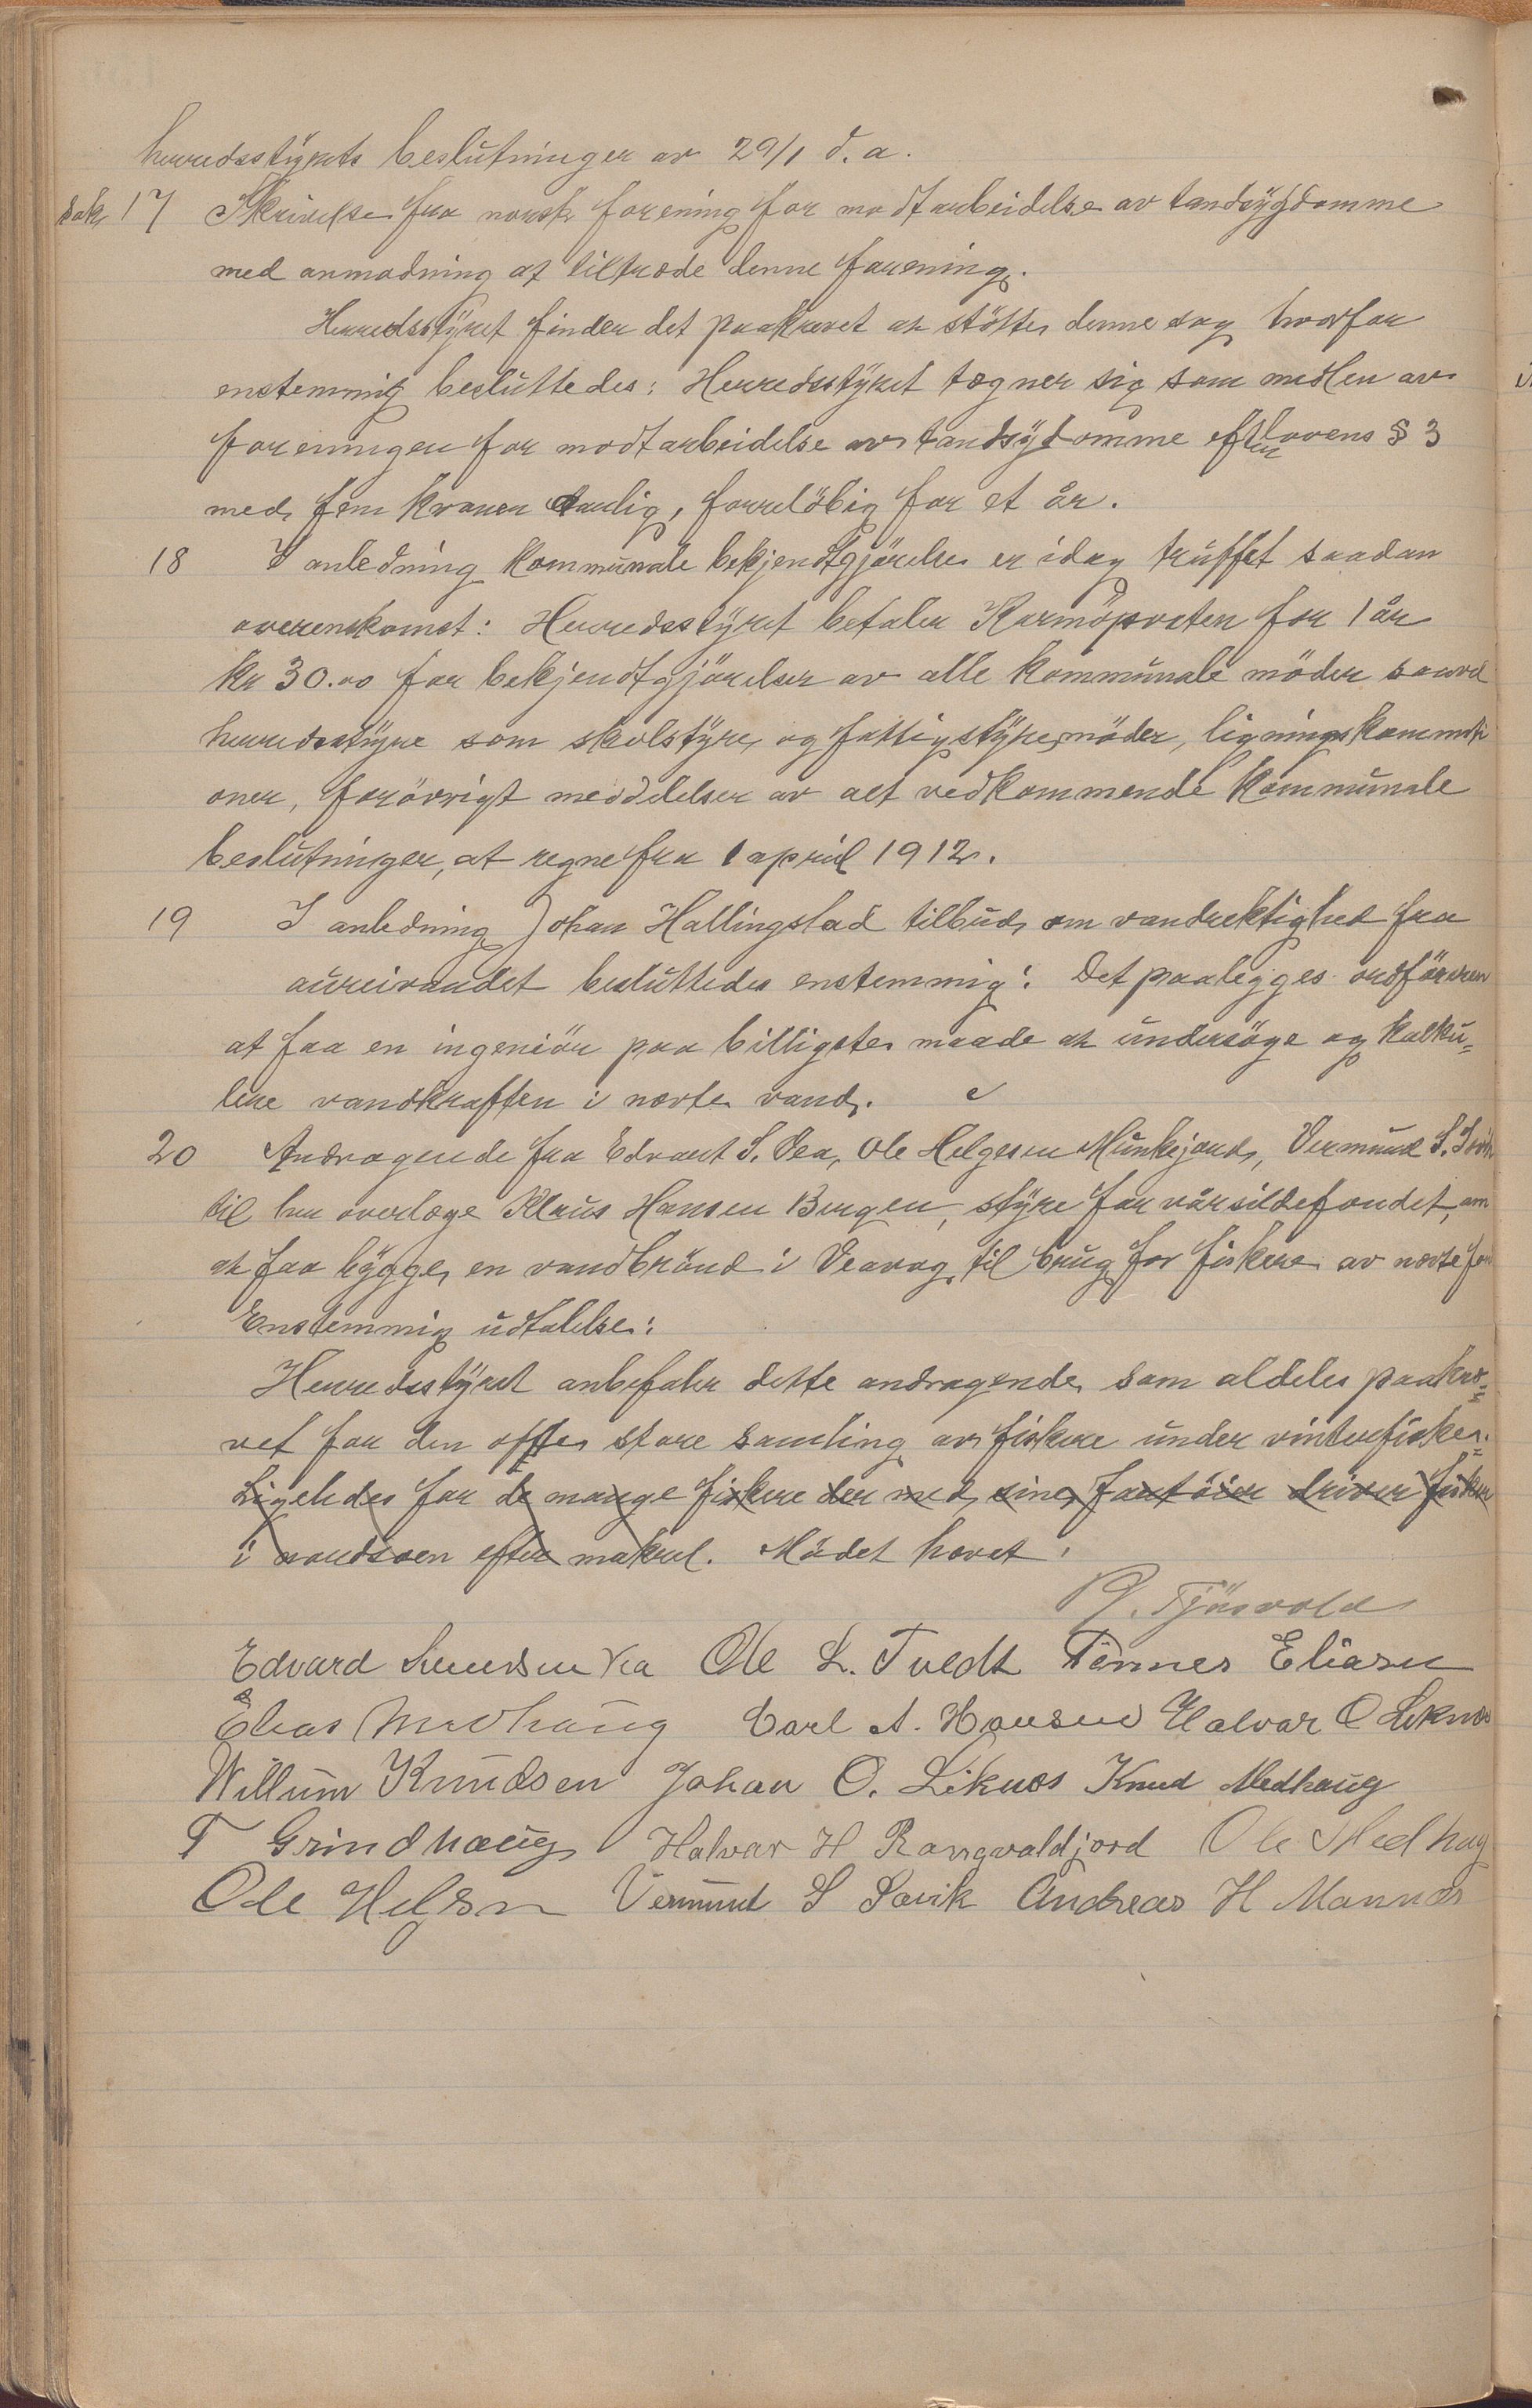 herredsstyrets beslutninger av 29/1 d. a.
Sak 17 Skrivelse fra norsk forening for modtarbeidelse av tandsygdomme
med anmodning at tiltræde denne forening.
Herredsstyret finder det paakrevet at støtte denne sag hvorfor
enstemmig besluttedes: Herredsstyret tegner sig som medlem av
foreningen for modtarbeidelse av tandsydomme efter lovens § 3
med fem kroner aarlig, foreløbig for et år.
18 I anledning kommunale bekjendtgjørelse er idag truffet saadan
overenskomst: Herredsstyret betaler Karmøposten for 1 år
kr 30.00 for bekjendtgjørelser av alle kommunale møder saavel
herredsstyre som skolstyre og fattigstyremøder, ligningskommisi
oner, forøvrigt meddelelser av alt vedkommende kommunale
beslutninger, at regne fra 1 april 1912.
19 I anledning Johan Hallingstad tilbud om vandrektighed fra
aureivandet besluttedes enstemmig: Det paalegges ordføreren
at faa en ingeniør paa billigste maade at undersøge og kalku=
lere vandkraften i nævte vand.
20 Andragende fra Edvart S. Vea, Ole Helgesen Munkejord, Vermund S. Sevik
til her overlæge Klaus Hansen Bergen, styre for vårsildefondet, om
at faa bygge en vandbrønd i Veavag til brug for fiskere av nævte fon
Enstemmig udtalelse:
Herredsstyret anbefaler dette andragende som aldeles paakræ=
vet for den ofte store samling av fiskere under vinterfisker.
Ligeledes for de mange fiskere der med sine fartøier driver fisker
i nordsøen efter makrel. Mødet hævet.
Tjøsvold
Edvard Simensen Vea Ole L. Tvedt Tønnes Eliasen
Elias Medhaug Carl A. Hansen Halvar O Liknes
Willum Knudsen Johan O. Liknes Knud Medhaug
T Grindhaug Halvar H Rangvaldjord Ole Medhug
Ole Helgsn Vermund S Sævik Andreas H Mannes